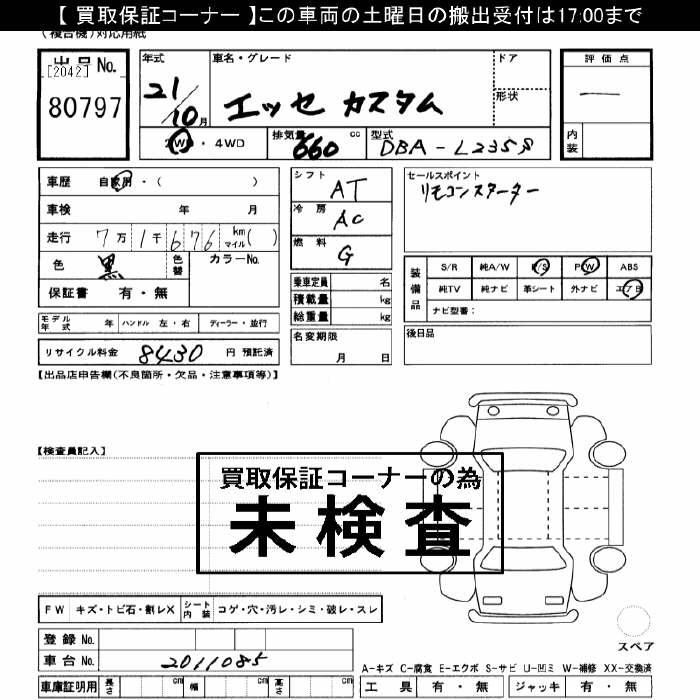 【 買取保証コーナー 】この車両の土曜日の搬出受付は17:00まで
(複合機)対応用紙
出品 No.
[2042]
80797
年式
21/10月
車名・グレード
エッセ カスタム
ドア
形状
2WD・4WD
排気量
660
cc
型式
DBA-L235S
評価点
内装
車歴 自家用・( )
車検 年 月
走行 7万1千676 km マイル( )
色 黒 色替 カラーNo.
保証書 有・無
シフト AT
冷房 AC
燃料 G
乗車定員 名
積載量 kg
総重量 kg
名変期限
月 日
セールスポイント
リモコンスターター
装備品
S/R 純A/W P/S P/W ABS
純TV 純ナビ 革シート 外ナビ エアB
ナビ型番:
後日品
モデル年式 年 ハンドル 左・右 ディーラー・並行
リサイクル料金 8430 円 預託済
【出品店申告欄(不良箇所・欠品・注意事項等)】
【検査員記入】
買取保証コーナーの為
未検査
FW キズ・トビ石・割レX シート内装 コゲ・穴・汚レ・シミ・破レ・スレ
登録 No.
車台 No. 2011085
車庫証明用 長さ cm 幅 cm 高さ cm
スペア
A-キズ C-腐食 E-エクボ S-サビ U-凹ミ W-補修 XX-交換済
工具 有・無 ジャッキ 有・無